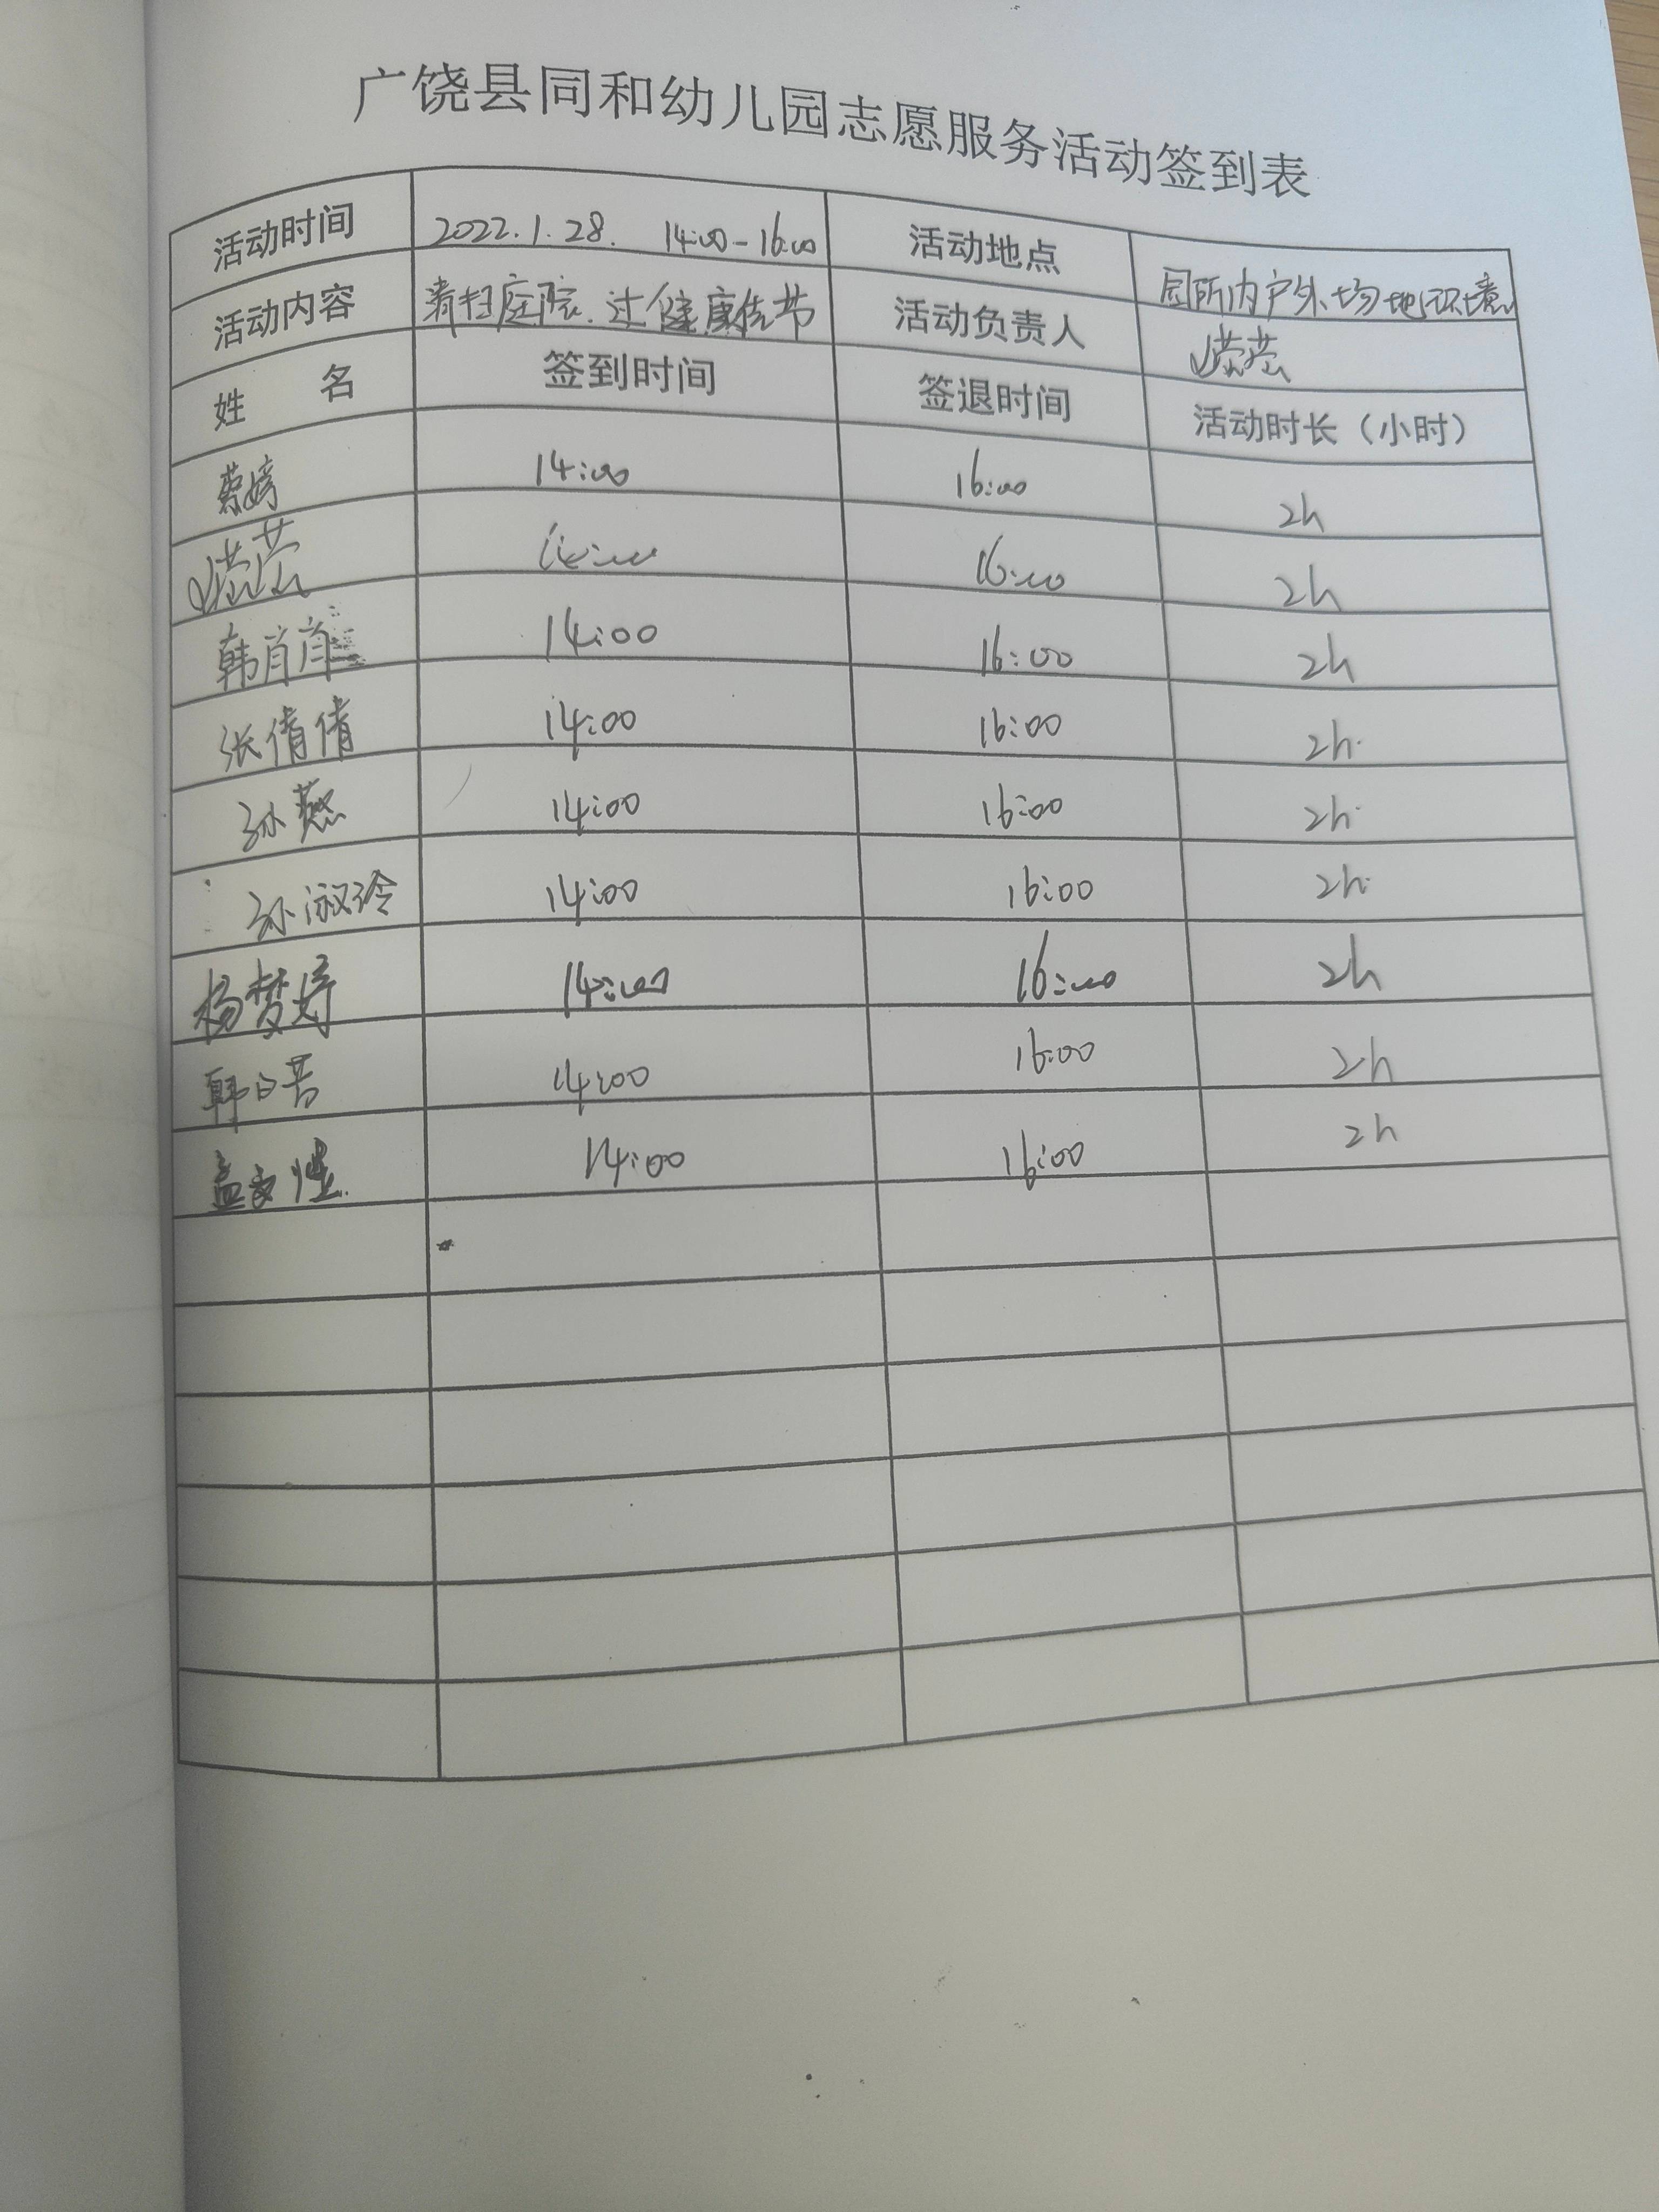 广饶县同和幼儿园志愿服务活动签到表
活动时间 2022.1.28. 14:00-16:00 活动地点 园所内户外场地环境
活动内容 清扫庭院.过健康佳节 活动负责人
姓 名 签到时间 签退时间 活动时长（小时）
蔡婷 14:00 16:00 2h
14:00 16:00 2h
韩肖肖 14:00 16:00 2h
张倩倩 14:00 16:00 2h.
孙燕 14:00 16:00 2h.
孙淑玲 14:00 16:00 2h.
杨梦婷 14:00 16:00 2h
韩 14:00 16:00 2h
孟 14:00 16:00 2h